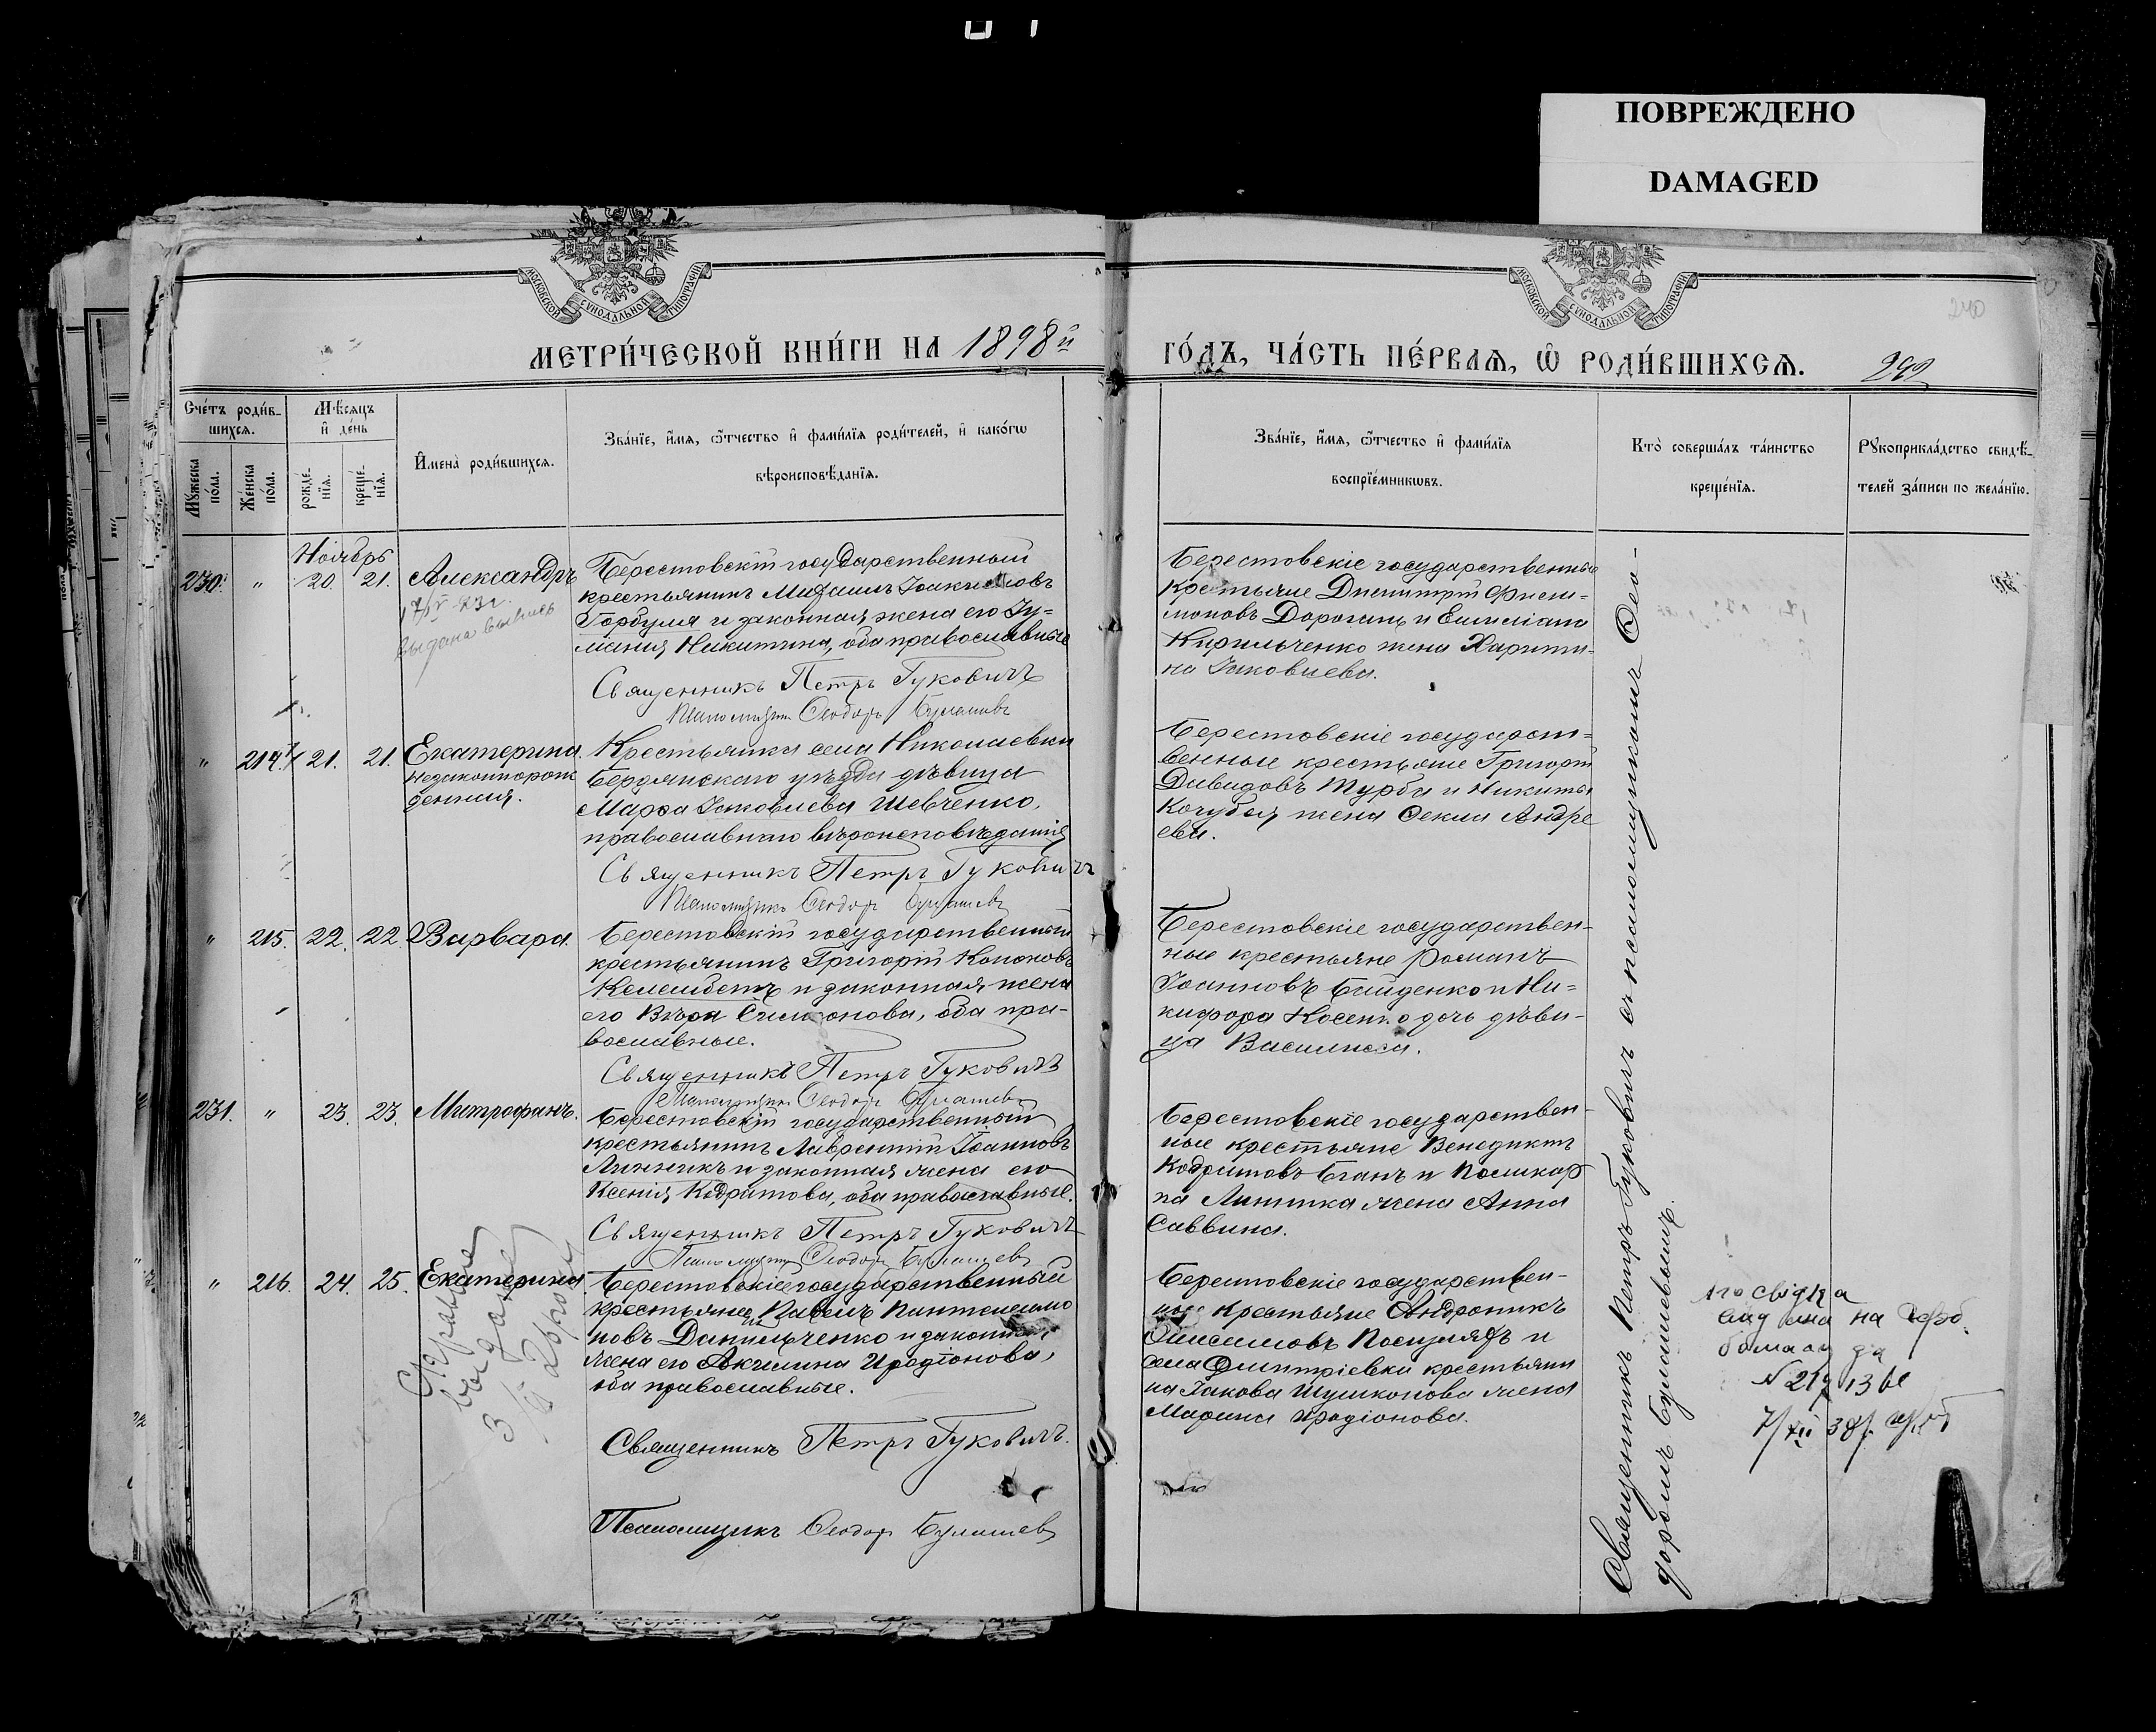 ПОВРЕЖДЕНО
DAMAGED
МОСКОВСКОЙ СУНОДАЛЬНОЙ ТИПОГРАФІИ
МОСКОВСКОЙ СУНОДАЛЬНОЙ ТИПОГРАФІИ
240
МЕТРИ́ЧЕСКОЙ КНИ́ГИ НА 1898й
ГО́ДЪ, ЧА́СТЬ ПЕ́РВАЯ, Ѽ РОДИ́ВШИХСЯ.
Сче́тъ роди́в-
шихся.
Мѣ́сяцъ
и҆ де́нь
Мꙋ́жеска
по́ла.
Же́нска
по́ла.
рожде́-
нїя.
креще́-
нїя.
И҆мена̀ роди́вшихся.
Зва́нїе, и҆́мя, ѻ҆́тчество и҆ фами́лїя роди́телей, и҆ како́гѡ
вѣроисповѣ́данїя.
Зва́нїе, и҆́мя, ѻ҆́тчество и҆ фами́лїя
воспрїе́мникѡвъ.
Кто̀ соверша́лъ та́инство
креще́нїя.
Рꙋкоприкла́дство свидѣ́-
телей за́писи по жела́нїю.
Ноябрь
230. " 20. 21. Александръ
выдана выпись
Берестовскій государственный
крестьянинъ Михаилъ Іоакимовъ
Горбуля и законная жена его Іу-
лianія Никитина, оба православные
Священникъ Петръ Гуковичъ
Псаломщикъ Ѳеодоръ Булашевъ
Берестовскіе государственные
крестьяне Димитрій Фили-
моновъ Дорогань и Емиліана
Кирильченко жена Харити-
на Іаковлева.
" 214. 21. 21. Екатерина
незаконнорож
денная.
Крестьянка села Николаевки
Бердянскаго уѣзда дѣвица
Марѳа Іаковлева Шевченко,
православнаго вѣроисповѣданія
Священникъ Петръ Гуковичъ
Псаломщикъ Ѳеодоръ Булашевъ
Берестовскіе государст-
венные крестьяне Григорій
Давидовъ Турба и Никиты
Кочубея жена Ѳекла Андре
ева.
" 215. 22. 22. Варвара
Берестовскій государственный
крестьянинъ Григорій Кононовъ
Келембетъ и законная жена
его Вѣра Филимонова, оба пра-
вославные.
Священникъ Петръ Гуковичъ
Псаломщикъ Ѳеодоръ Булашевъ
Берестовскіе государствен-
ные крестьяне Романъ
Іоанновъ Байденко и Ни-
кифора Косенко дочь дѣви-
ца Василиса.
231. " 23. 23. Митрофанъ.
Берестовскій государственный
крестьянинъ Лаврентій Іоанновъ
Линникъ и законная жена его
Ксенія Кодратова, оба православные.
Священникъ Петръ Гуковичъ
Псаломщикъ Ѳеодоръ Булашевъ
Берестовскіе государствен-
ные крестьяне Венедиктъ
Кодратовъ Беганъ и Поликар
па Линника жена Анна
Саввина.
" 216. 24. 25. Екатерина
Справка
выдана
Берестовскіе государственный
крестьянинъ Павелъ Пантелеимо
новъ Данильченко и законная
жена его Акилина Иродіонова,
оба православные.
Священникъ Петръ Гуковичъ.
Псаломщикъ Ѳеодоръ Булашевъ
Берестовскіе государствен-
ные крестьяне Андроникъ
Онисимовъ Посуляй и
села Димитріевки крестьяни
на Іакова Шушконова жена
Марина Иродіонова.
Священникъ Петръ Гуковичъ съ псаломщикомъ Ѳео-
доромъ Булашевымъ.
посвідка
видана на